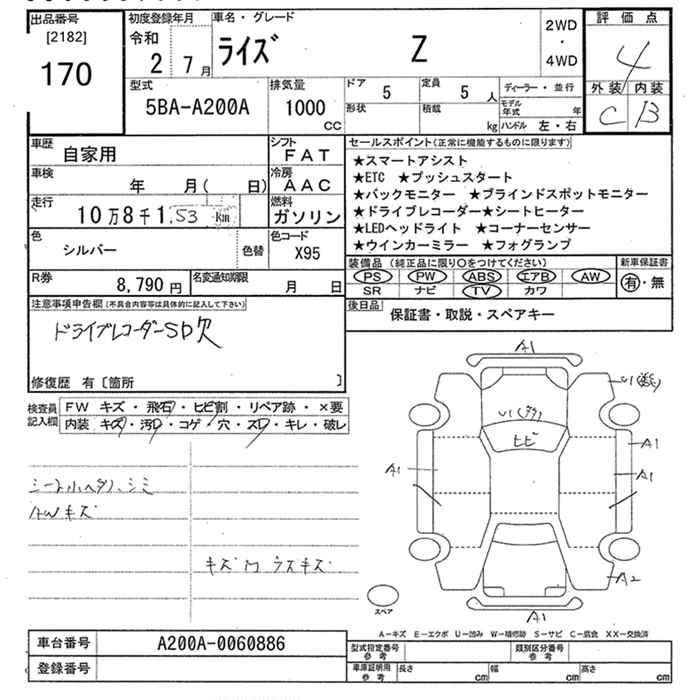 出品番号
[2182]
170
初度登録年月
令和
2 7月
車名・グレード
ライズ Z
2WD
・
4WD
評価点
4
外装 内装
C B
型式
5BA-A200A
排気量
1000
CC
ドア 5
定員 5人
形状
積載 kg
ディーラー・並行
モデル年式 年
ハンドル 左・右
車歴
自家用
シフト
FAT
車検
年 月( 日)
冷房
AAC
走行
10万8千153km
燃料
ガソリン
色
シルバー
色替
色コード
X95
R券
8,790円
名変通知期限
月 日
セールスポイント(正常に機能するものに限ります)
★スマートアシスト
★ETC ★プッシュスタート
★バックモニター ★ブラインドスポットモニター
★ドライブレコーダー★シートヒーター
★LEDヘッドライト ★コーナーセンサー
★ウインカーミラー ★フォグランプ
装備品(純正品に限り○をつけてください)
PS PW ABS エアB AW
SR ナビ TV カワ
新車保証書
有・無
後日品
保証書・取説・スペアキー
注意事項申告欄(不具合内容等は具体的に記入して下さい)
ドライブレコーダーSD欠
修復歴 有〔箇所 〕
検査員記入欄
FW キズ・飛石・ヒビ割・リペア跡・×要
内装 キズ・汚レ・コゲ・穴・スレ・キレ・破レ
AWキズ
A1
U1
U1
ヒビ
A1
A1
A1
A2
A1
スペア
A-キズ E-エクボ U-凹み W-補修跡 S-サビ C-腐食 XX-交換済
車台番号
A200A-0060886
登録番号
型式指定番号
参考
類別区分番号
参考
車庫証明用
参考
長さ cm
幅 cm
高さ cm